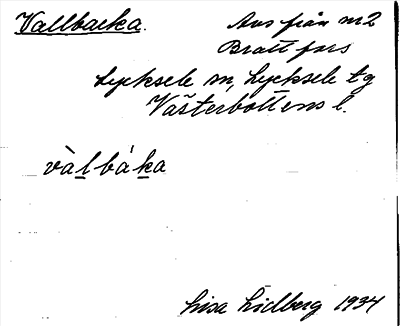 Vallbacka.
Avs från nr 2
Brattfors
Lycksele sn, Lycksele tg
Västerbottens l.
vàl̲bák̲a
Lisa Lidberg 1934